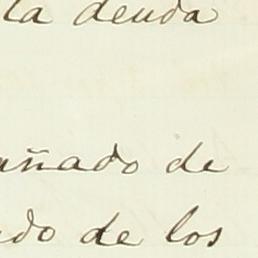 la deuda
añado de
do de los